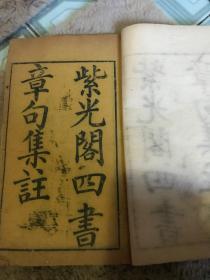 紫光閣四書
章句集註